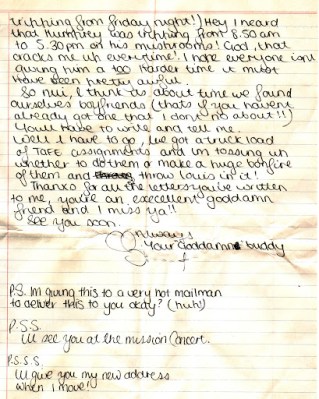 tripping from friday night!) Hey I heard
that Humphrey was tripping from 8.50 am
to 5.30 pm on his mushrooms! God, that
cracks me up everytime! I hope everyone isnt
giving him a too harder time it must
have been pretty awful.
So nui, I think its about time we found
ourselves boyfriends (thats if you havent
already got one that I dont no about!!)
Youll have to write and tell me.
Well I have to go, Ive got a truck load
of TAFE assignments and Im tossing up
whether to do them or make a huge bonfire
of them and throw louis in it!
Thanks for all the letters you've written
to me, you're an execellent goddamn
friend and I miss ya!!
See you soon.
Always
Your Goddamn buddy
P.S. Im giving this to a very hot mailman
to deliver this to you okay? (huh!)
P.S.S.
Ill see you at the mission Concert.
P.S.S.S.
Ill give you my new address
when I move!